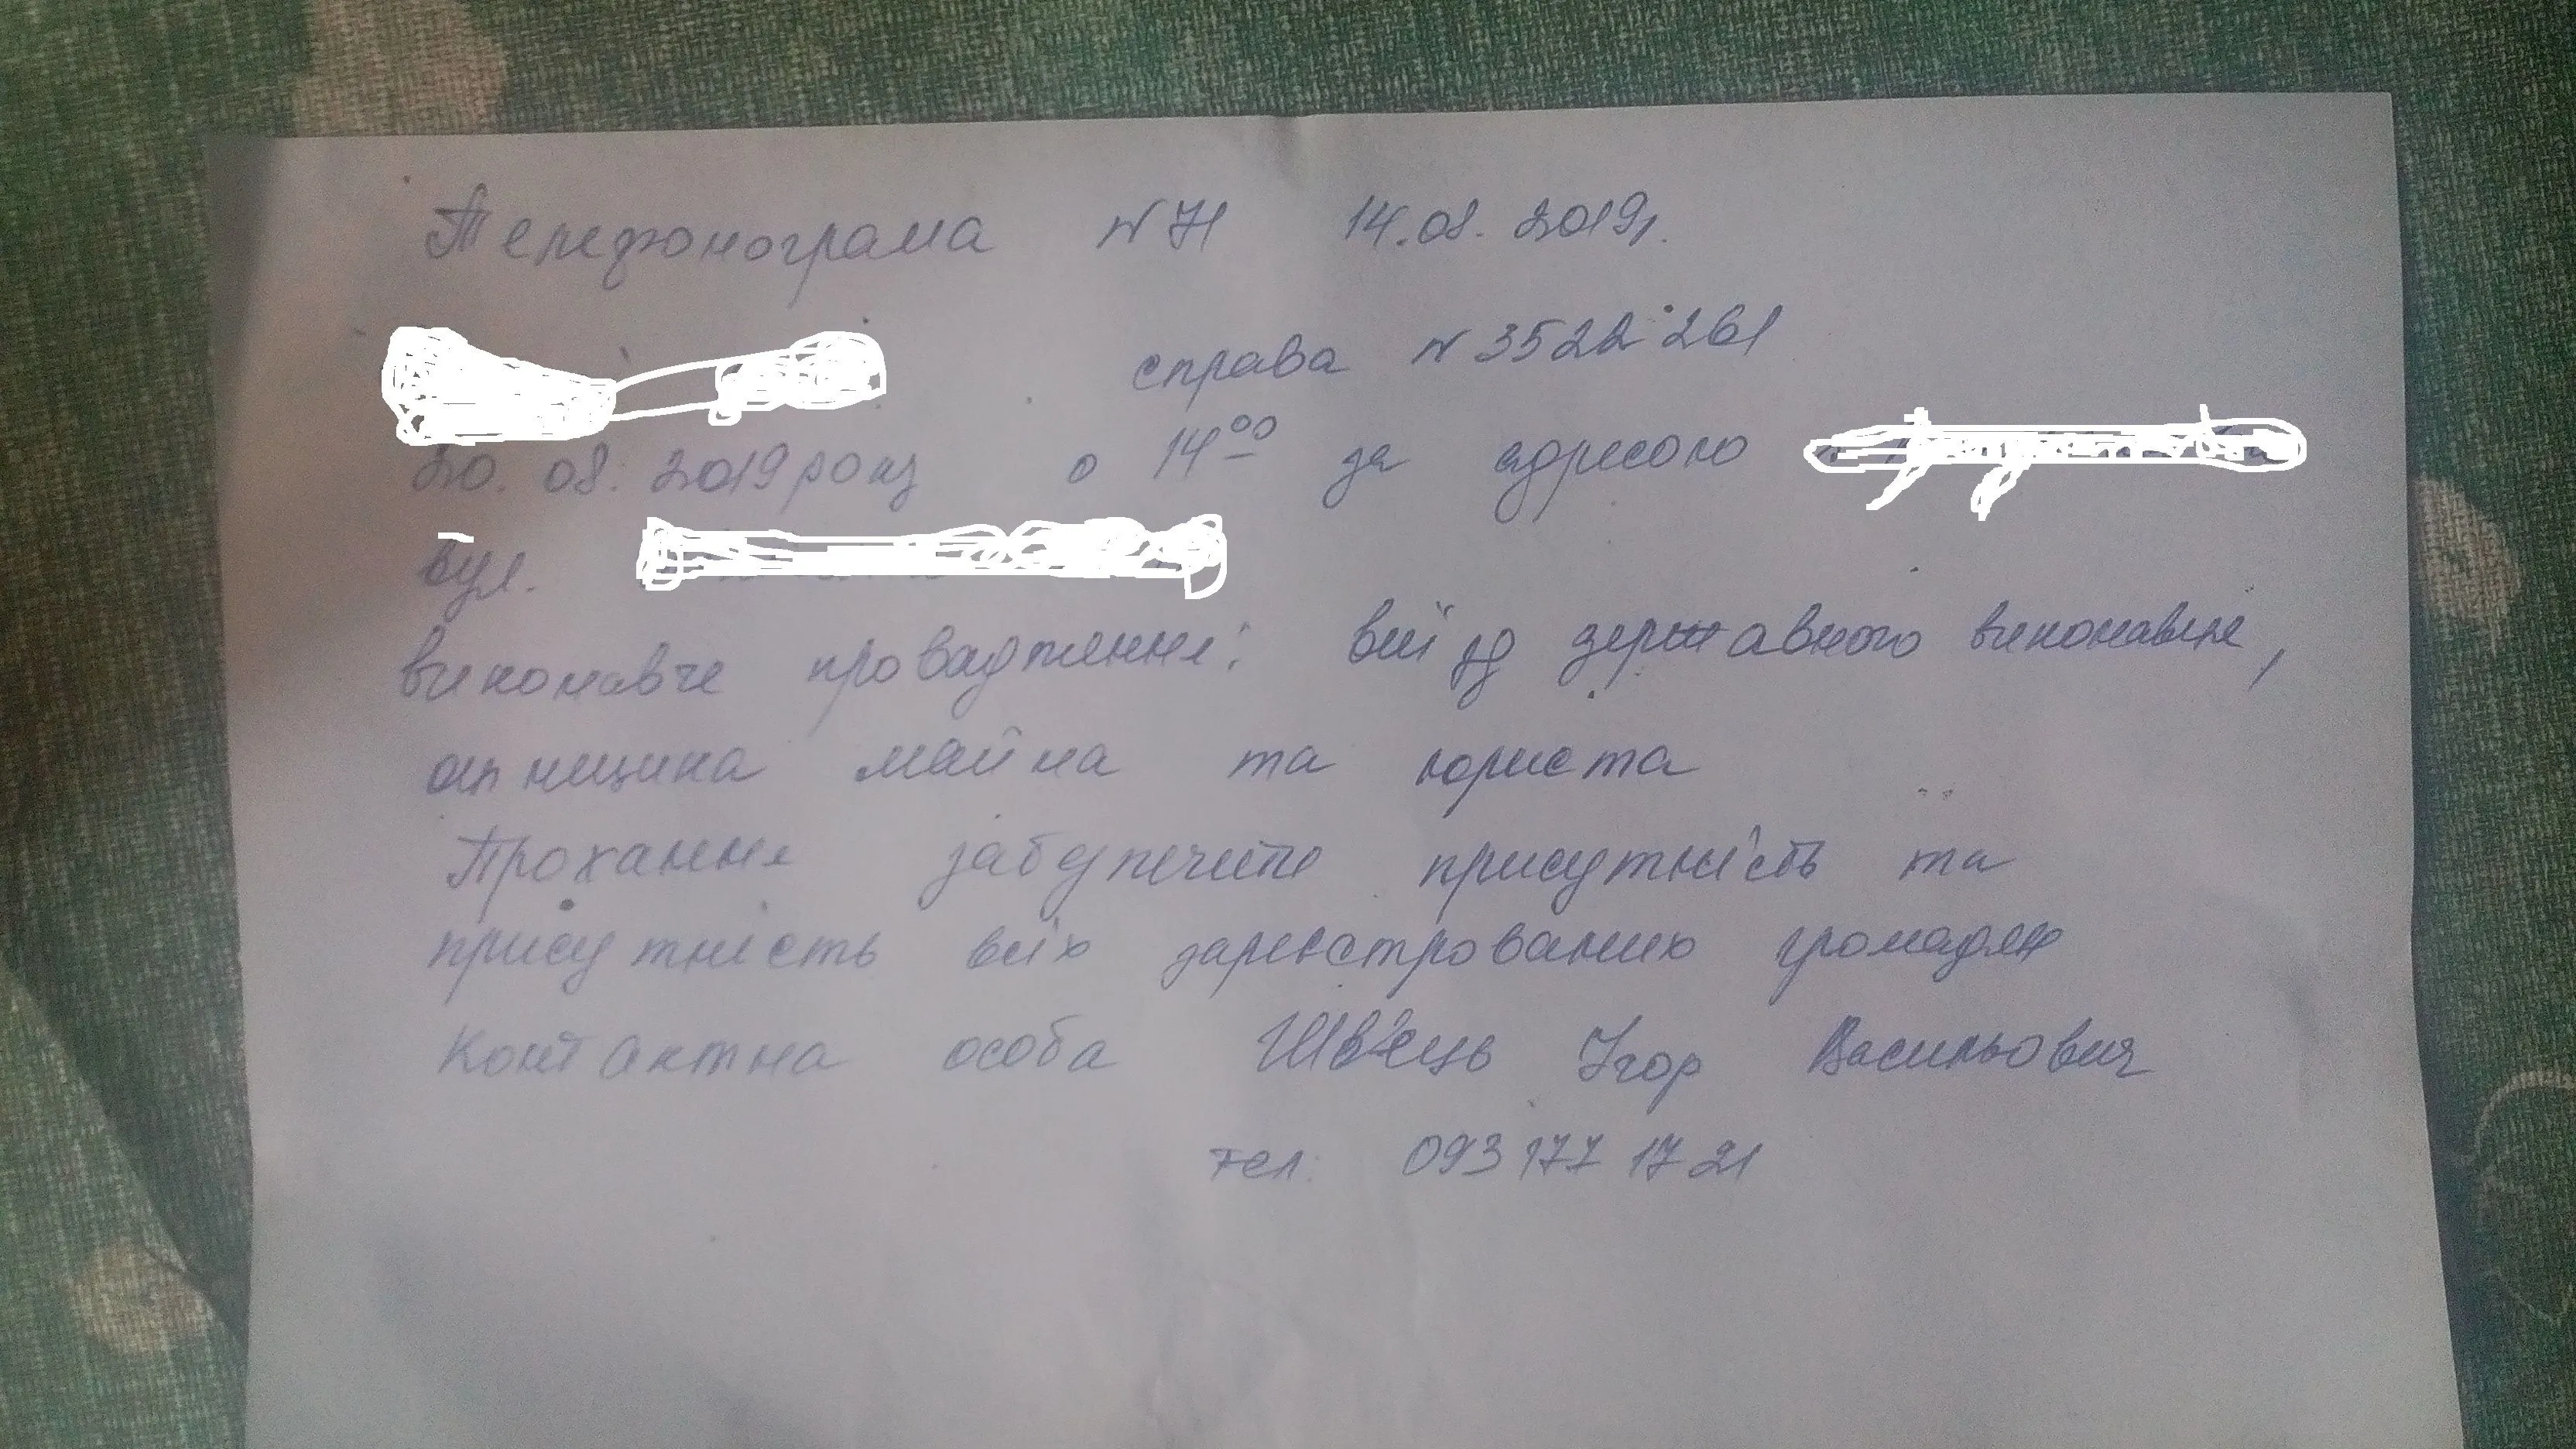 Телефонограма N 71 14.08.2019р.
справа N 3522261
20.08.2019 року о 14 00 за адресою
вул.
виконавче провадження: виїзд державного виконавця,
оцінщика майна та юриста
Прохання забезпечити присутність та
присутність всіх зареєстрованих громадян
Контактна особа Швець Ігор Васильович
тел. 093 177 17 21